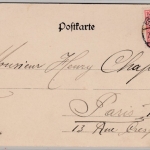 Postkarte
Monsieur Henry Chap
Paris
13. Rue